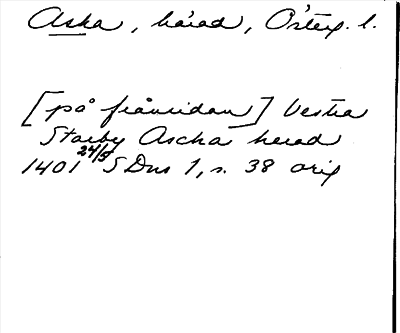 Aska, härad, Östg. l.
[på frånsidan] Vestra
Starby Ascha herad
1401 24/5 SDns 1, s. 38 orig